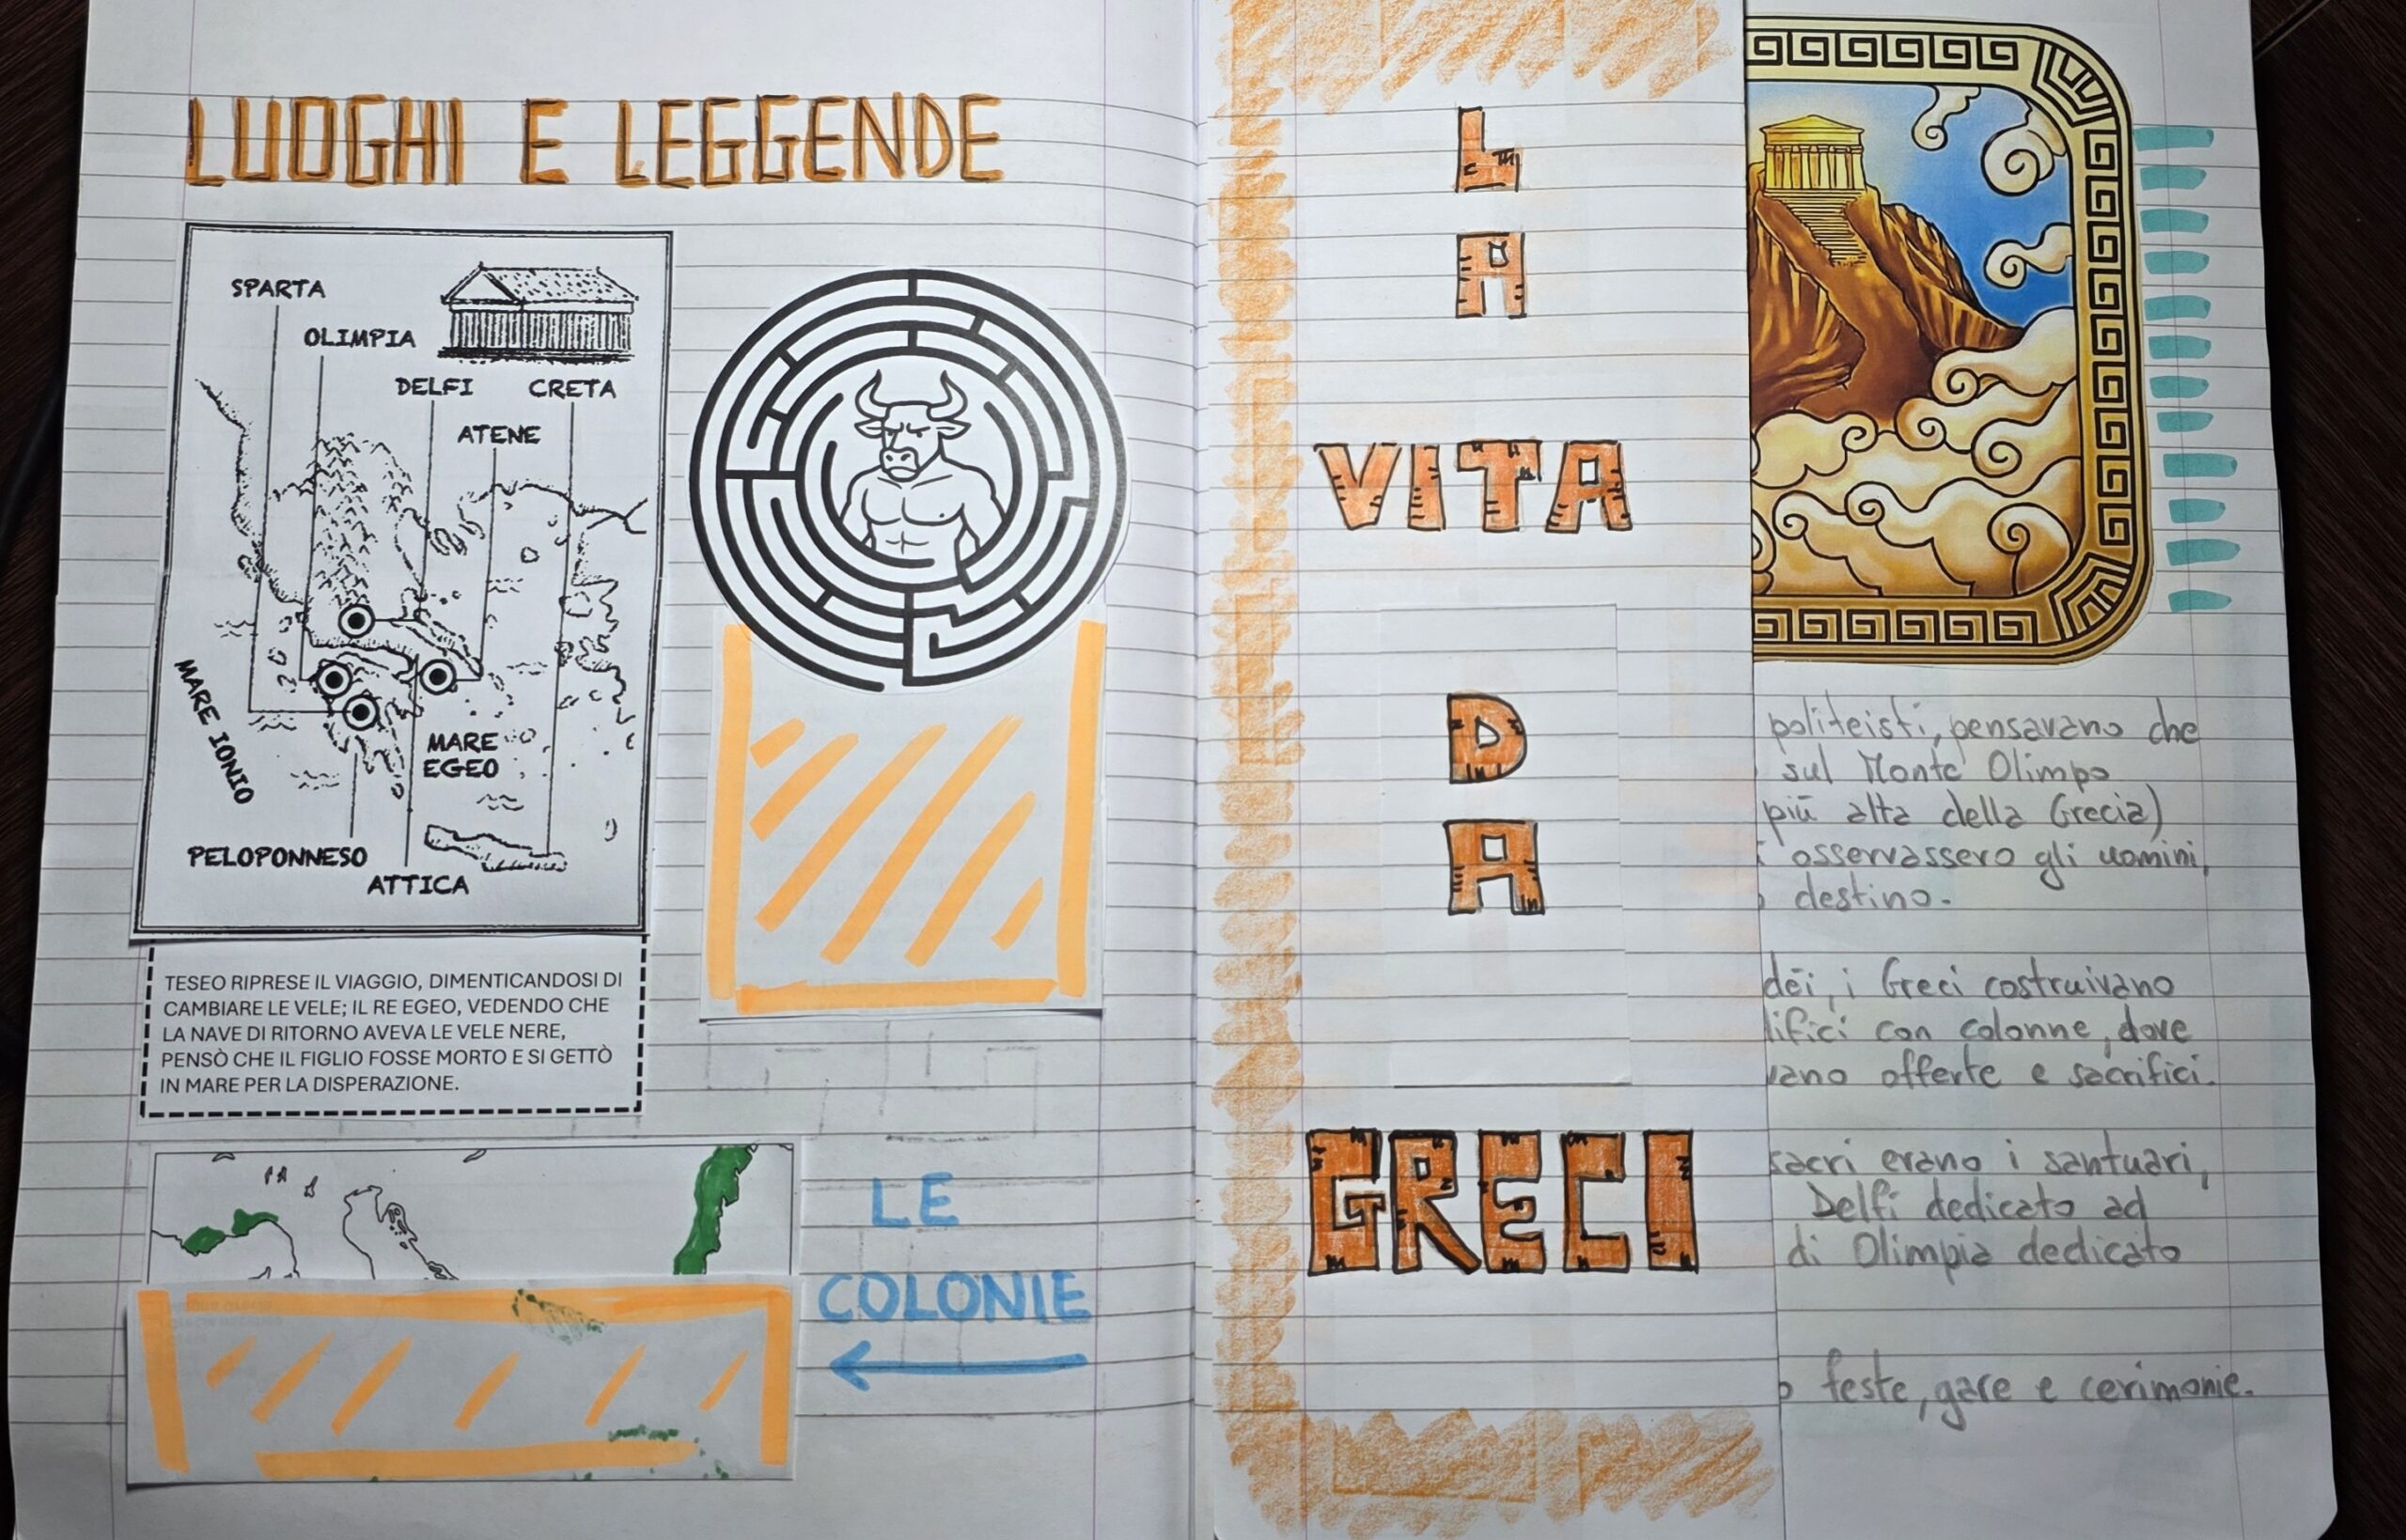 LUOGHI E LEGGENDE
SPARTA
OLIMPIA
DELFI
CRETA
ATENE
MARE IONIO
MARE
EGEO
PELOPONNESO
ATTICA
TESEO RIPRESE IL VIAGGIO, DIMENTICANDOSI DI
CAMBIARE LE VELE; IL RE EGEO, VEDENDO CHE
LA NAVE DI RITORNO AVEVA LE VELE NERE,
PENSÒ CHE IL FIGLIO FOSSE MORTO E SI GETTÒ
IN MARE PER LA DISPERAZIONE.
LE
COLONIE
L
A
VITA
D
A
GRECI
politeisti, pensavano che
sul Monte Olimpo
più alta della Grecia)
osservassero gli uomini,
destino.
dei, i Greci costruivano
con colonne, dove
offerte e sacrifici.
sacri erano i santuari,
Delfi dedicato ad
di Olimpia dedicato
feste, gare e cerimonie.